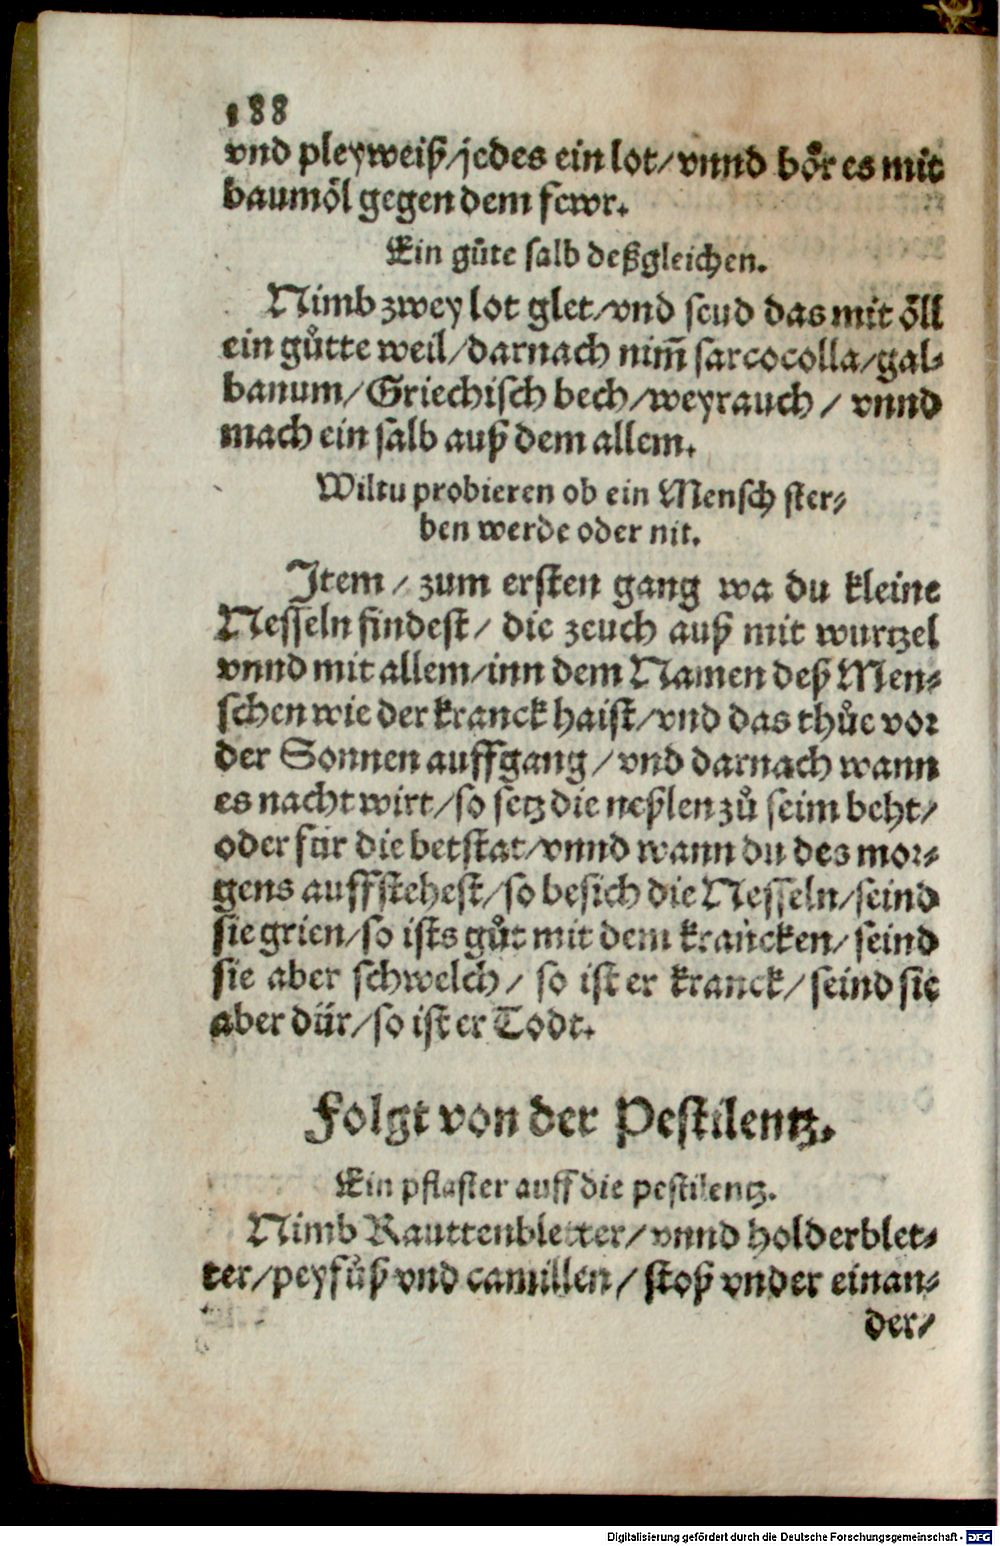 188
vnd pleyweiß/jedes ein lot/vnnd boͤr es mit
baumoͤl gegen dem fewr.
Ein guͤte salb deßgleichen.
Nimb zwey lot glet/vnd seud das mit oͤll
ein guͦtte weil/darnach nim̃ sarcocolla/gal⸗
banum/Griechisch bech/weyrauch/ vnnd
mach ein salb auß dem allem.
Wiltu probieren ob ein Mensch ster⸗
ben werde oder nit.
Item/ zum ersten gang wa du kleine
Nesseln findest/ die zeuch auß mit wurtzel
vnnd mit allem/inn dem Namen deß Men⸗
schen wie der kranck haist/vnd das thuͦe vor
der Sonnen auffgang/vnd darnach wann
es nacht wirt/so setz die neßlen zuͦ seim beht/
oder für die betstat/vnnd wann du des mor⸗
gens auffstehest/so besich die Nesseln/seind
sie grien/so ists guͦt mit dem krancken/seind
sie aber schwelch/ so ist er kranck/seind sie
aber dür/so ist er Todt.
Folgt von der Pestilentz.
Ein pflaster auff die pestilentz.
Nimb Rauttenbletter/vnnd holderblet⸗
ter/peyfuͦß vnd camillen/ stoß vnder einan⸗
der/
Digitalisierung gefördert durch die Deutsche Forschungsgemeinschaft - DFG